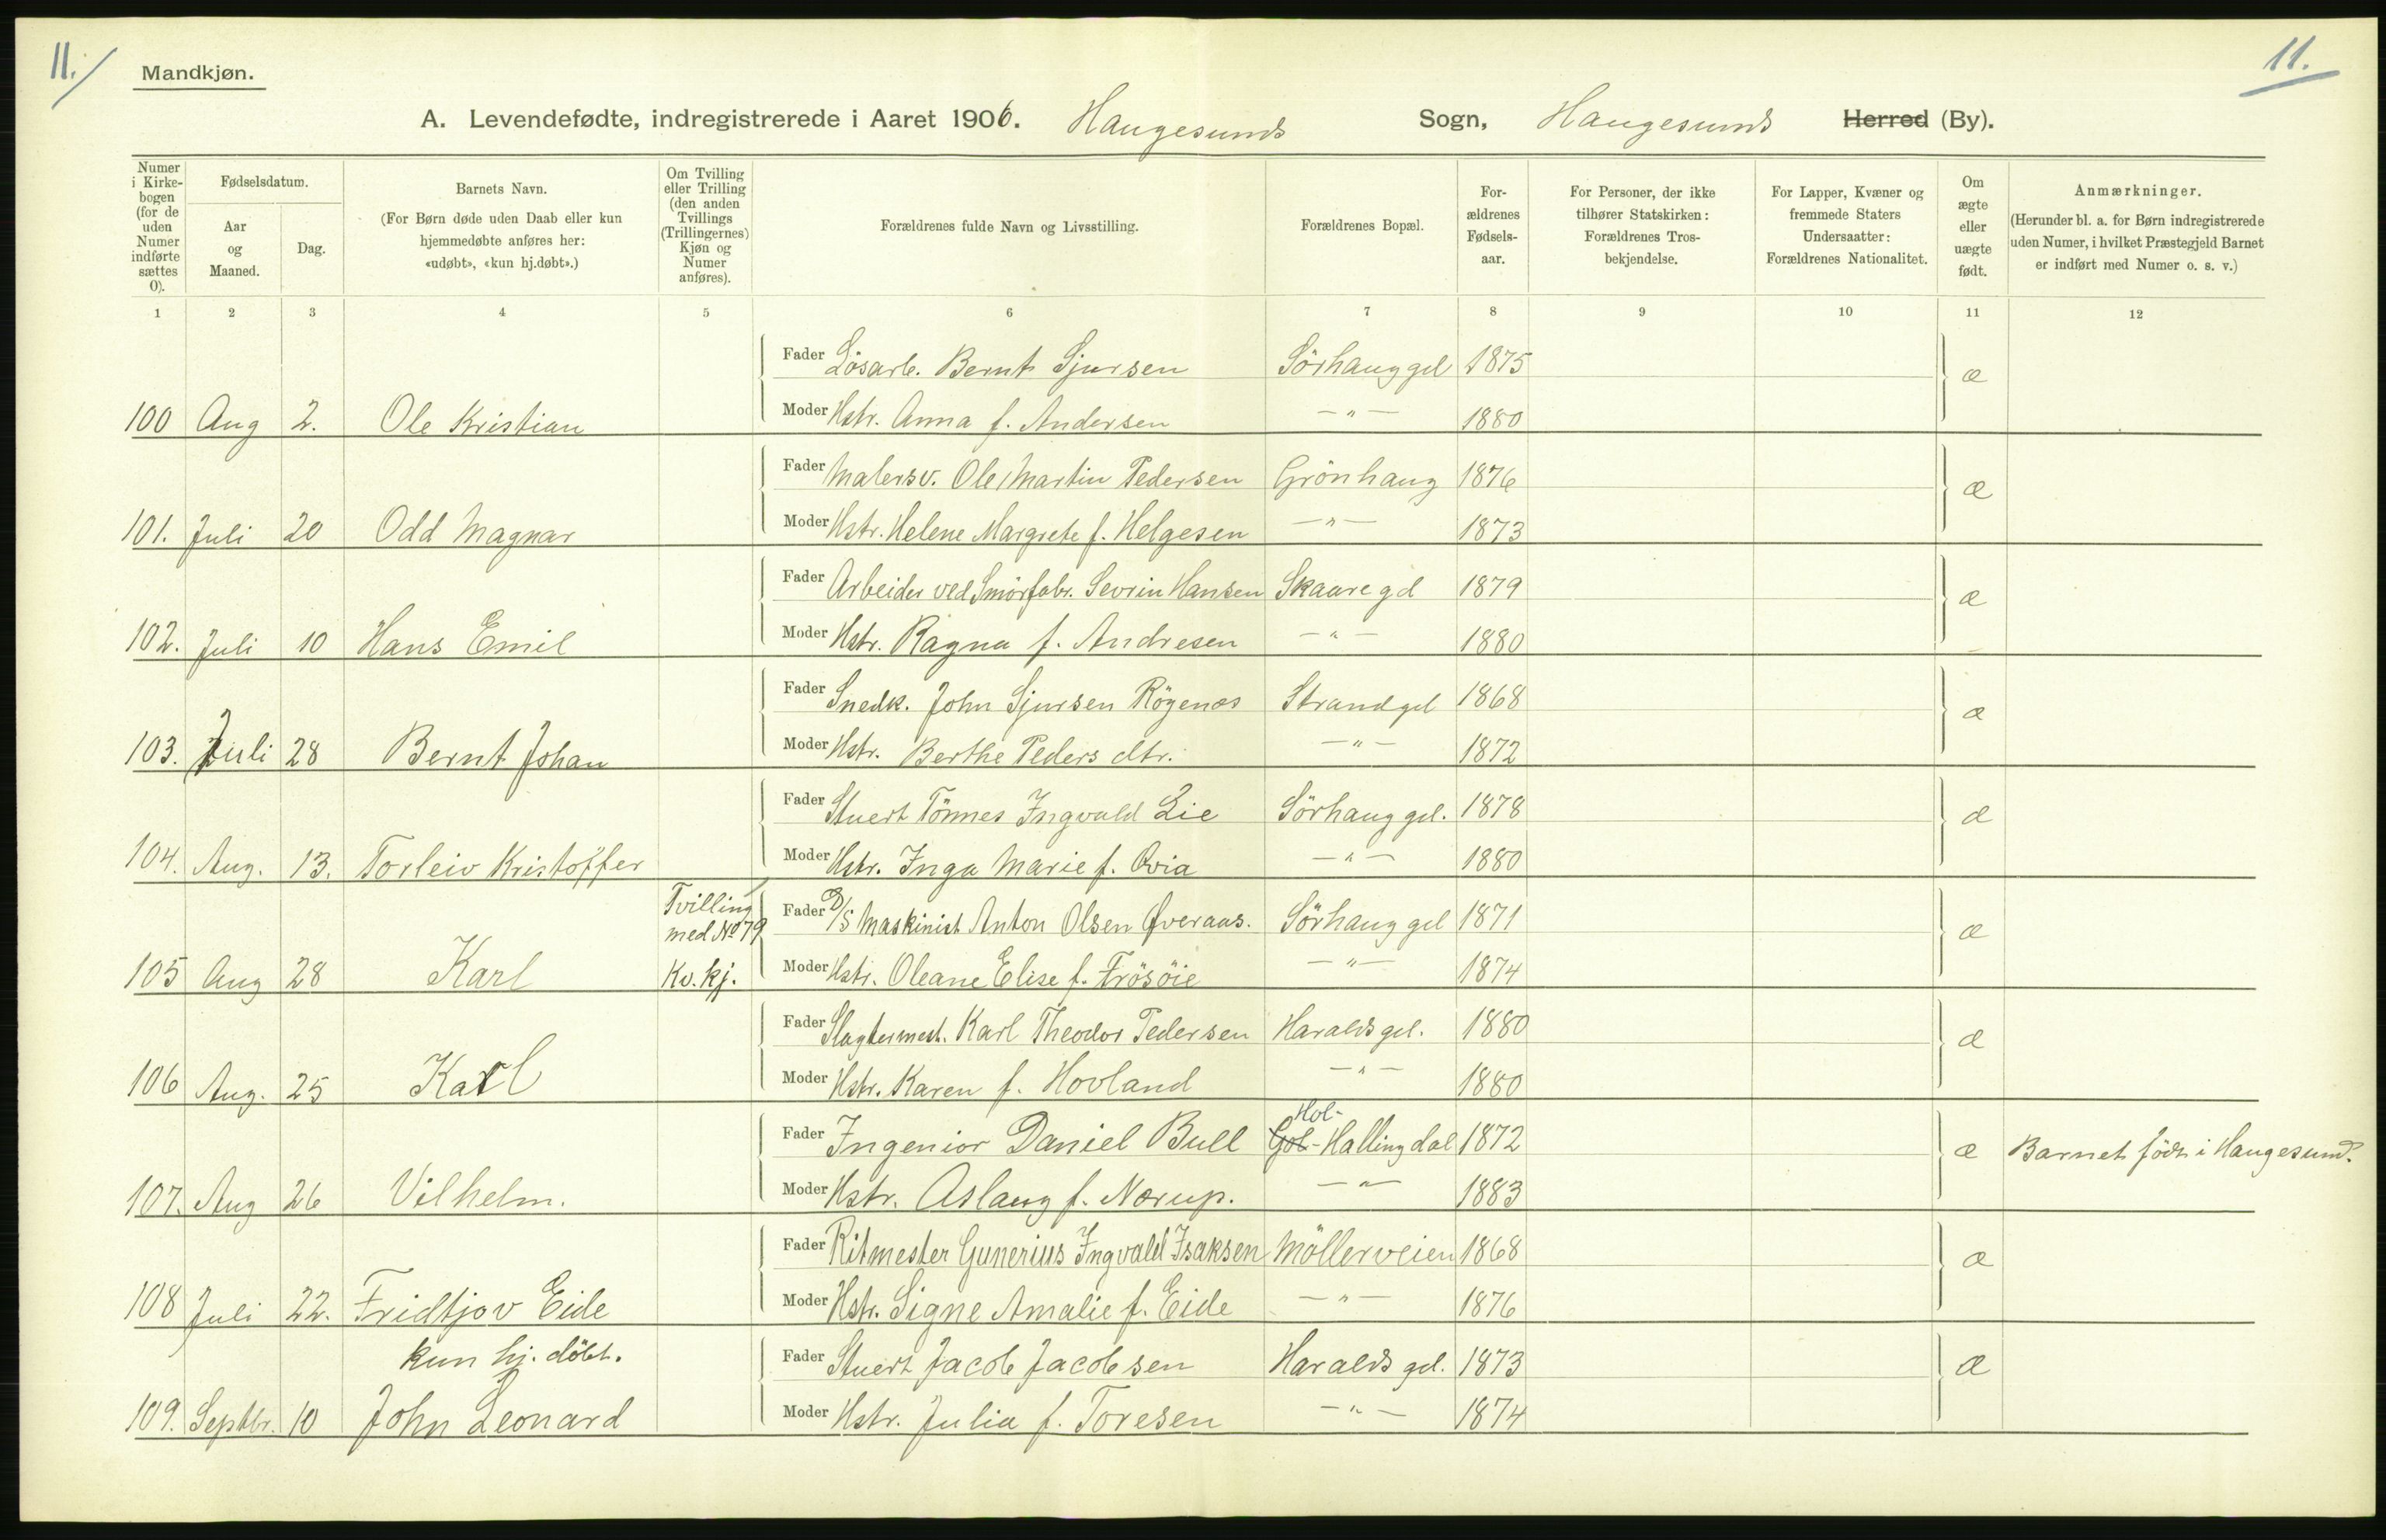 11.
11.
Mandkjøn.
A. Levendefødte, indregistrerede i Aaret 1906. Haugesunds Sogn, Haugesunds Herred (By).
Numer i Kirkebogen (for de uden Numer indførte sættes 0).
Fødselsdatum.
Aar og Maaned.
Dag.
Barnets Navn.
(For Børn døde uden Daab eller kun hjemmedøbte anføres her: «udøbt», «kun hj.døbt».)
Om Tvilling eller Trilling (den anden Tvillings (Trillingernes) Kjøn og Numer anføres).
Forældrenes fulde Navn og Livsstilling.
Forældrenes Bopæl.
Forældrenes Fødselsaar.
For Personer, der ikke tilhører Statskirken: Forældrenes Trosbekjendelse.
For Lapper, Kvæner og fremmede Staters Undersaatter: Forældrenes Nationalitet.
Om ægte eller uægte født.
Anmærkninger.
(Herunder bl. a. for Børn indregistrerede uden Numer, i hvilket Præstegjeld Barnet er indført med Numer o. s. v.)
1 2 3 4 5 6 7 8 9 10 11 12
Fader Lösarb. Bernt Sjursen Sörhauggd 1875 æ
100 Aug 2. Ole Kristian Moder Hstr. Anna f. Andersen —"— 1880
Fader Malersv. Ole Martin Pedersen Grönhaug 1876 æ
101. Juli 20 Odd Magnar Moder Hstr. Helene Margrete f. Helgesen —"— 1873
Fader Arbeider ved Smörfabr. Sevrin Hansen Skaaregd 1879 æ
102. Juli 10 Hans Emil Moder Hstr. Ragna f. Andresen —"— 1880
Fader Snedk. John Sjursen Rögenæs Strandgd 1868 æ
103. Juli 28 Bernt Johan Moder Hstr. Berthe Peders dtr. —"— 1872
Fader Stuert Tönnes Ingvald Lie Sörhauggd. 1878 æ
104. Aug. 13. Torleiv Kristoffer Moder Hstr. Inga Marie f. Qvia —"— 1880
Tvilling med No 79 Fader D/S Maskinist Anton Olsen Øveraas. Sörhauggd 1871 æ
105 Aug 28 Karl Kv. kj. Moder Hstr. Oleane Elise f. Frösöie —"— 1874
Fader Slagtermest. Karl Theodor Pedersen Haraldsgd. 1880 æ
106 Aug. 25 Karl Moder Hstr. Karen f. Hovland —"— 1880
Hol-
Fader Ingeniör Daniel Bull Gol-Hallingdal 1872 æ Barnet født i Haugesund.
107. Aug 26 Vilhelm. Moder Hstr. Aslaug f. Nørup. —"— 1883
Fader Ritmester Gunerius Ingvald Isaksen Möllerveien 1868 æ
108 Juli 22. Fridtjov Eide Moder Hstr. Signe Amalie f. Eide —"— 1876
kun hj. döbt. Fader Stuert Jacob Jacobsen Haraldsgd. 1873 æ
109. Septbr. 10 John Leonard Moder Hstr. Julia f. Toresen —"— 1874